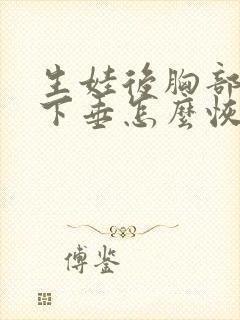 生娃後胸部
下垂怎麼恢
傅鉴